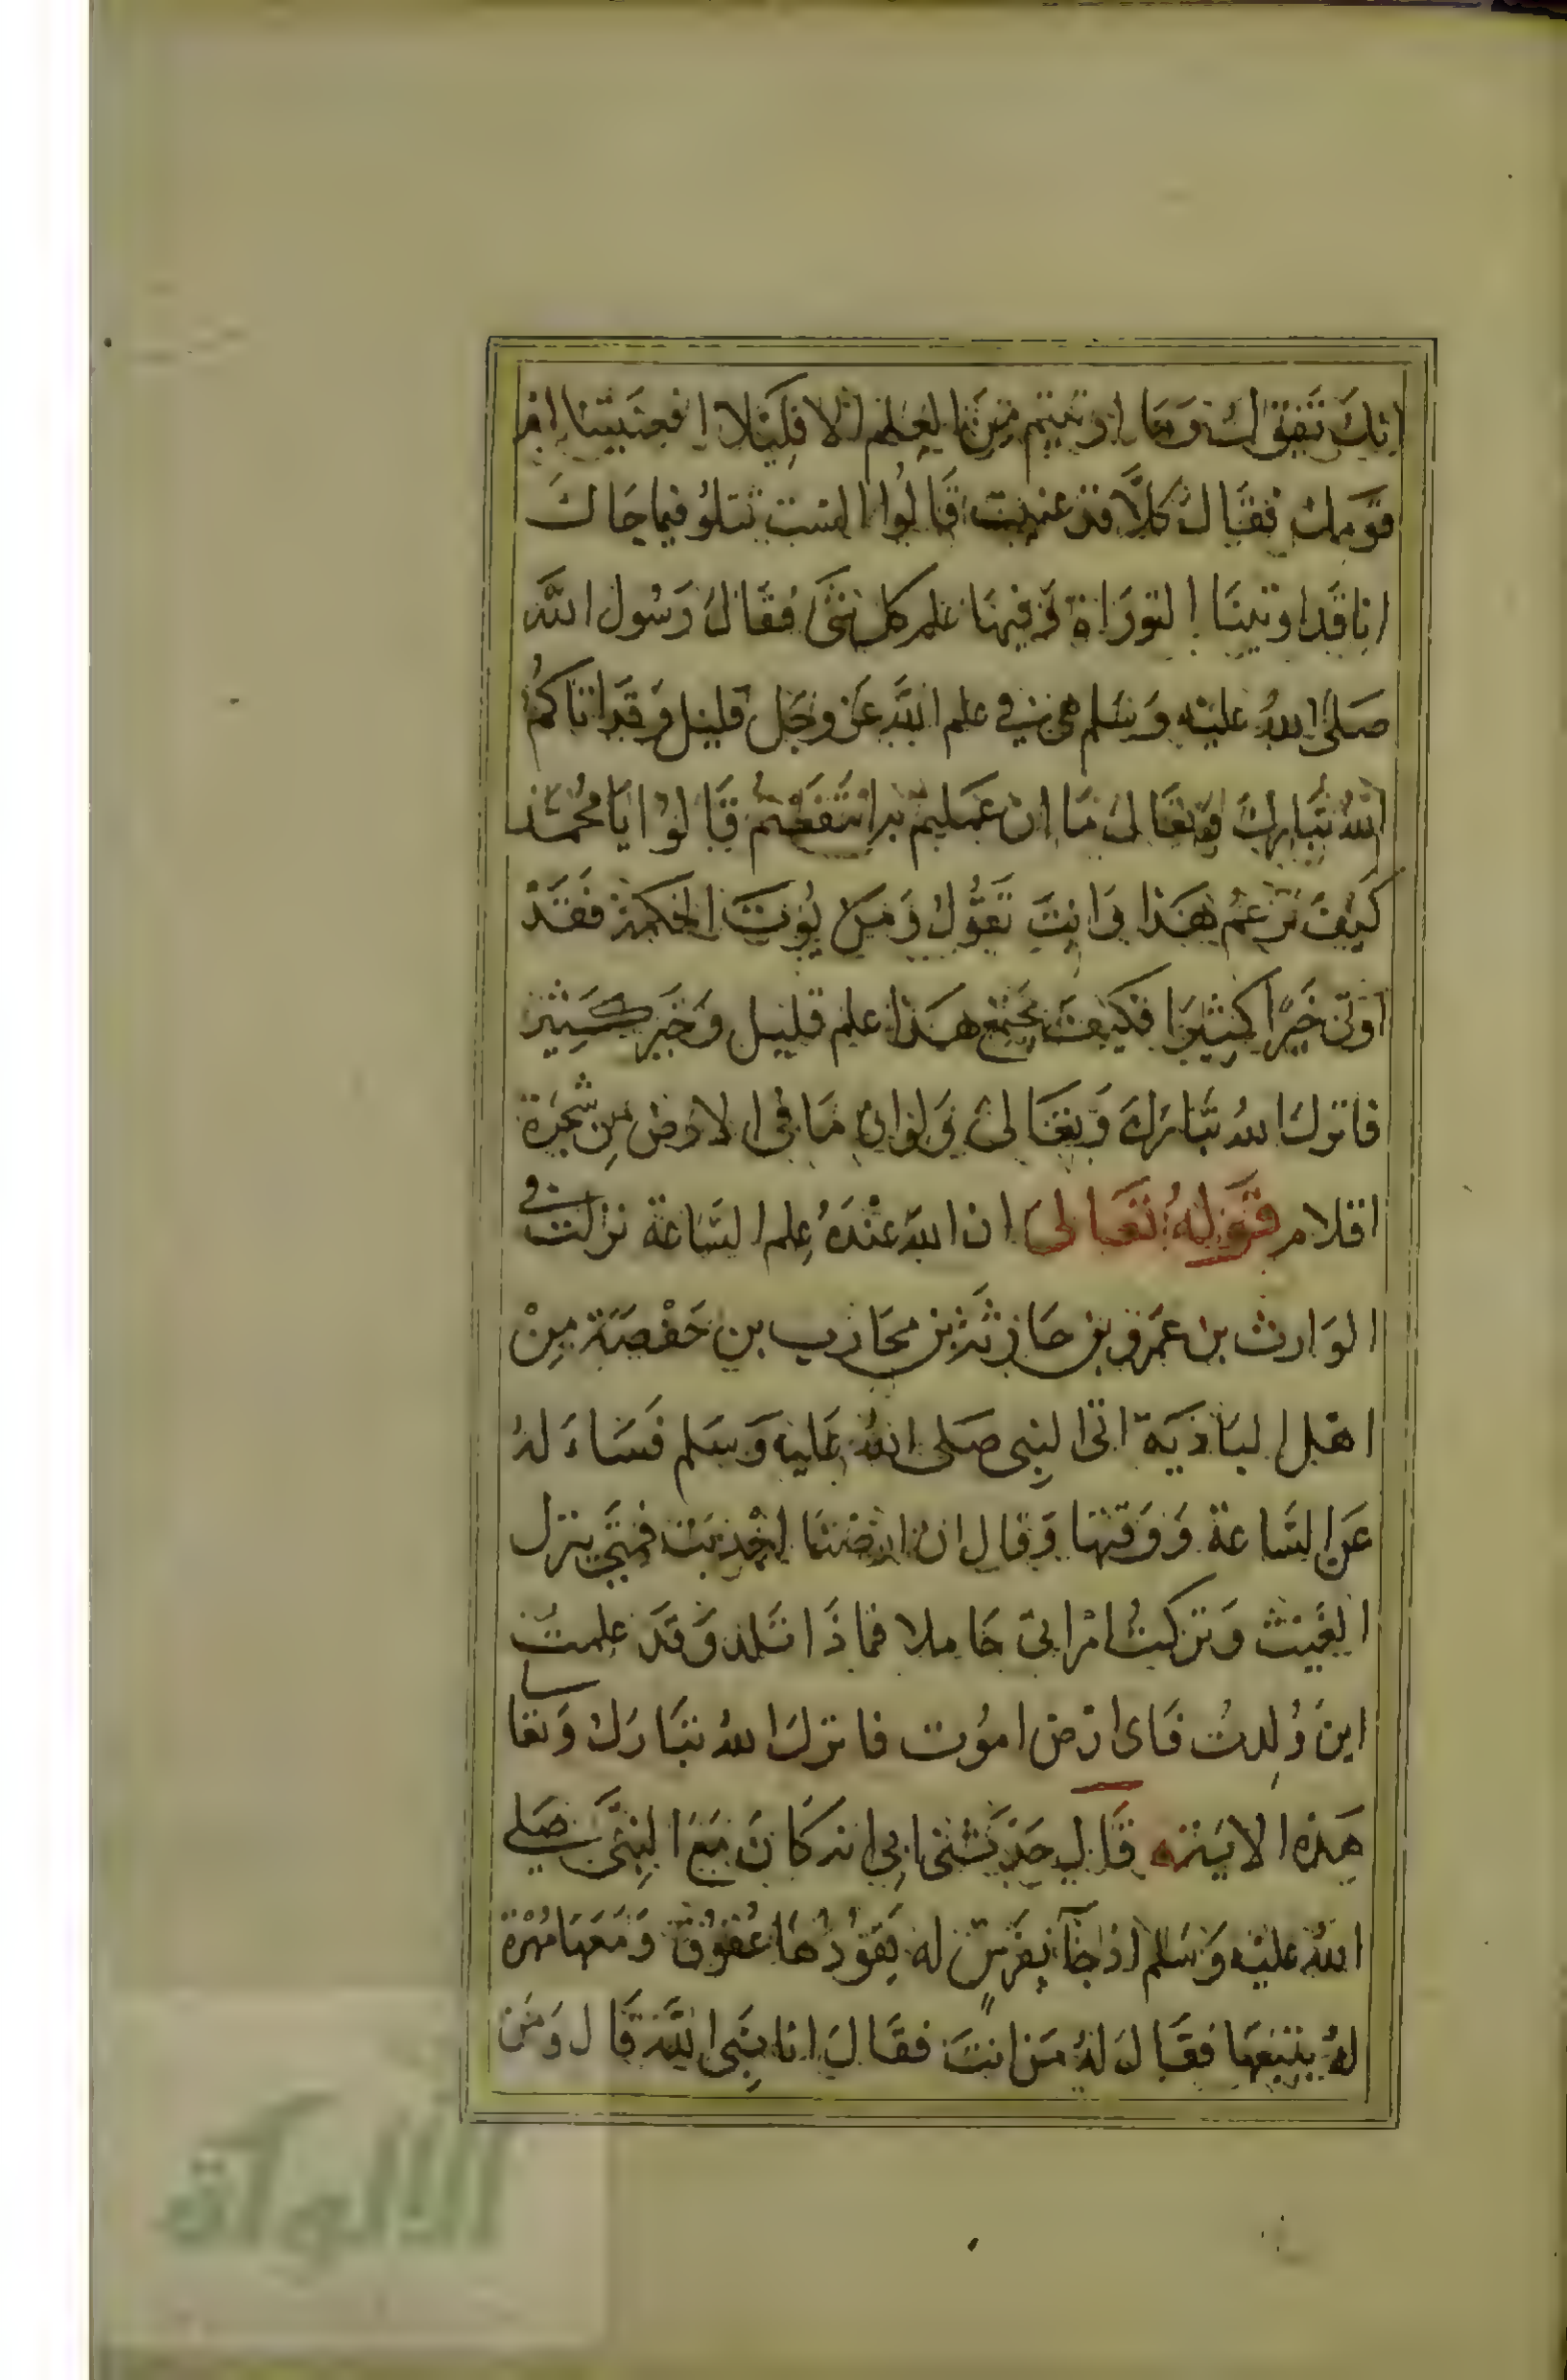 انك تقول وما اوتيتم من العلم الا قليلا افعنيتنا ام
قومك فقال كلا قد عنيت قالوا الست تتلو فيما جاك
انا قد اوتينا التوراة وفيها علم كل شى فقال رسول الله
صلى الله عليه وسلم هي في علم الله عز وجل قليل وقد اتاكم
الله تبارك وتعالى ما ان عملتم به انتفعتم قالوا يا محمد
كيف تزعم هذا وانت تقول ومن يوت الحكمة فقد
اوتى خيرا كثيرا فكيف يجتمع هذا علم قليل وخير كثير
فانزل الله تبارك وتعالى ولو ان ما فى الارض من شجرة
اقلام قوله تعالى ان الله عنده علم الساعة نزلت في
الوارث بن عمرو بن حارثة بن محارب بن حفصة من
اهل البادية اتى النبى صلى الله عليه وسلم فساءله
عن الساعة ووقتها وقال ان ارضنا اجدبت فمتى ينزل
الغيث وتركت امراتى حاملا فماذا تلد وقد علمت
اين ولدت فباى ارض اموت فانزل الله تبارك وتعا
هذه الاية قال حدثنى ابي انه كان مع النبى صلى
الله عليه وسلم اذ جآ بفرس له يقودها عقوق ومعها مهرة
له يتبعها فقال له من انت فقال انا نبى الله قال ومن
الألوكة